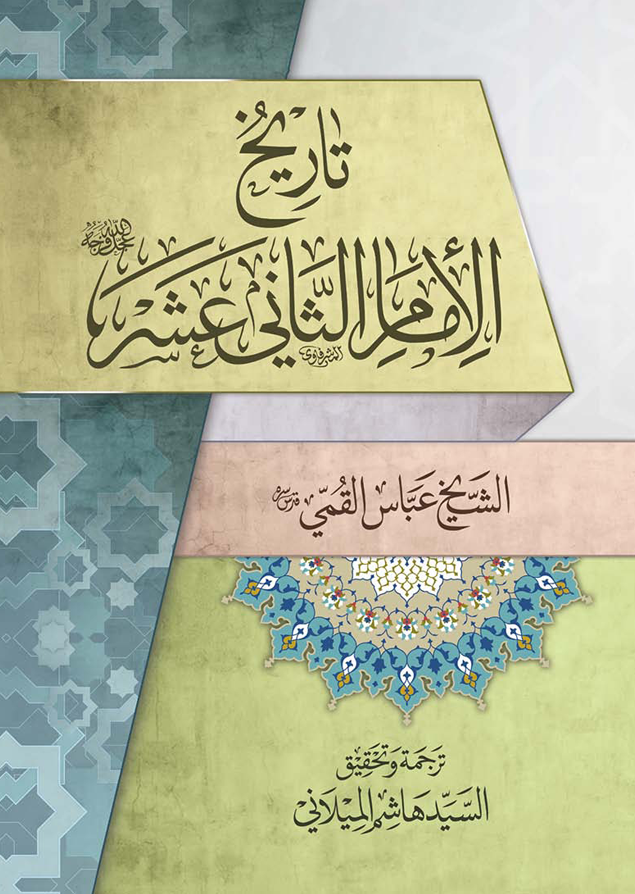 تَارِيخُ
الإِمَامِ الثَّانِي عَشَرَ عجل الله فرجه
الشرقاوي
الشَّيْخ عَبَّاس القُمِّي قدس سره
تَرجَمَة وَتَحْقِيق
السَّيِّد هَاشِم المِيلَانِي